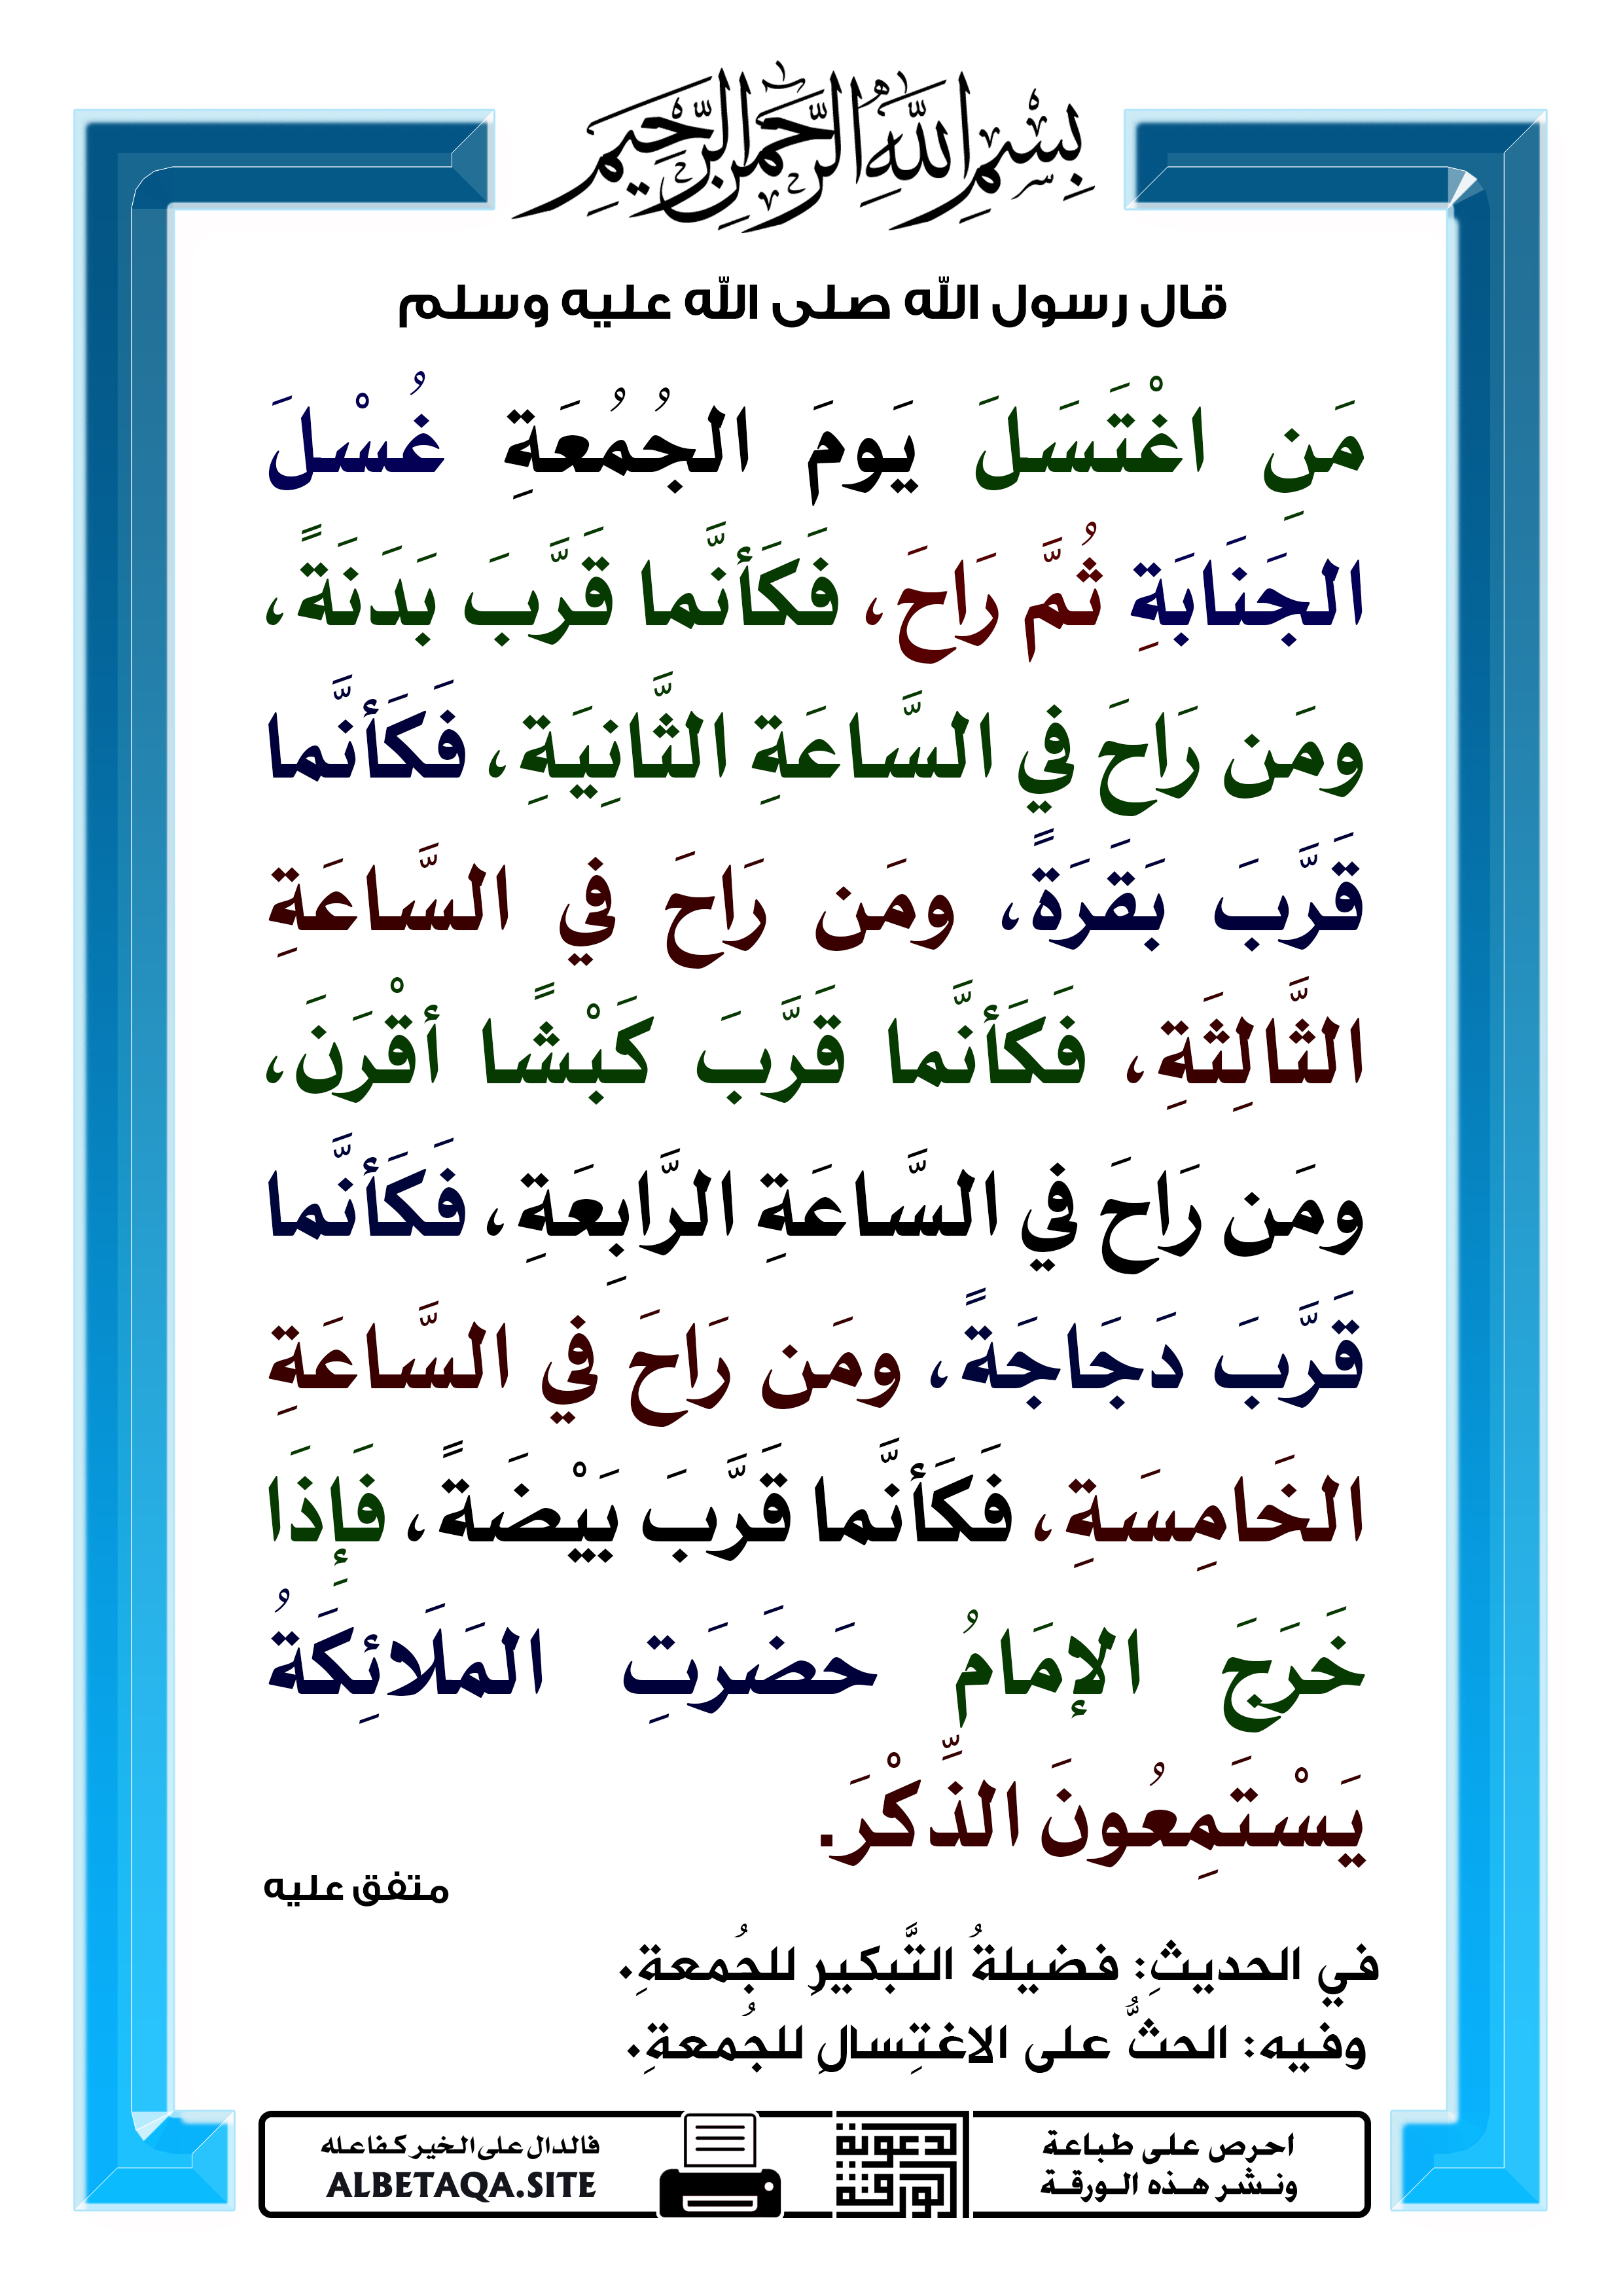 بِسْمِ اللَّهِ الرَّحْمَنِ الرَّحِيمِ
قال رسول الله صلى الله عليه وسلم
مَنِ اغْتَسَلَ يَومَ الجُمُعَةِ غُسْلَ
الجَنَابَةِ ثُمَّ رَاحَ، فَكَأنَّما قَرَّبَ بَدَنَةً،
ومَن رَاحَ في السَّاعَةِ الثَّانِيَةِ، فَكَأنَّما
قَرَّبَ بَقَرَةً، ومَن رَاحَ في السَّاعَةِ
الثَّالِثَةِ، فَكَأنَّما قَرَّبَ كَبْشًا أقْرَنَ،
ومَن رَاحَ في السَّاعَةِ الرَّابِعَةِ، فَكَأنَّما
قَرَّبَ دَجَاجَةً، ومَن رَاحَ في السَّاعَةِ
الخَامِسَةِ، فَكَأنَّما قَرَّبَ بَيْضَةً، فَإِذَا
خَرَجَ الإمَامُ حَضَرَتِ المَلَائِكَةُ
يَسْتَمِعُونَ الذِّكْرَ.
متفق عليه
في الحديثِ: فضيلةُ التَّبكيرِ للجُمعةِ.
وفيه: الحثُّ على الاغتِسالِ للجُمعةِ.
احرص على طباعة
ونشر هذه الورقة
الورقة
الدعوية
فالدال على الخير كفاعله
ALBETAQA.SITE